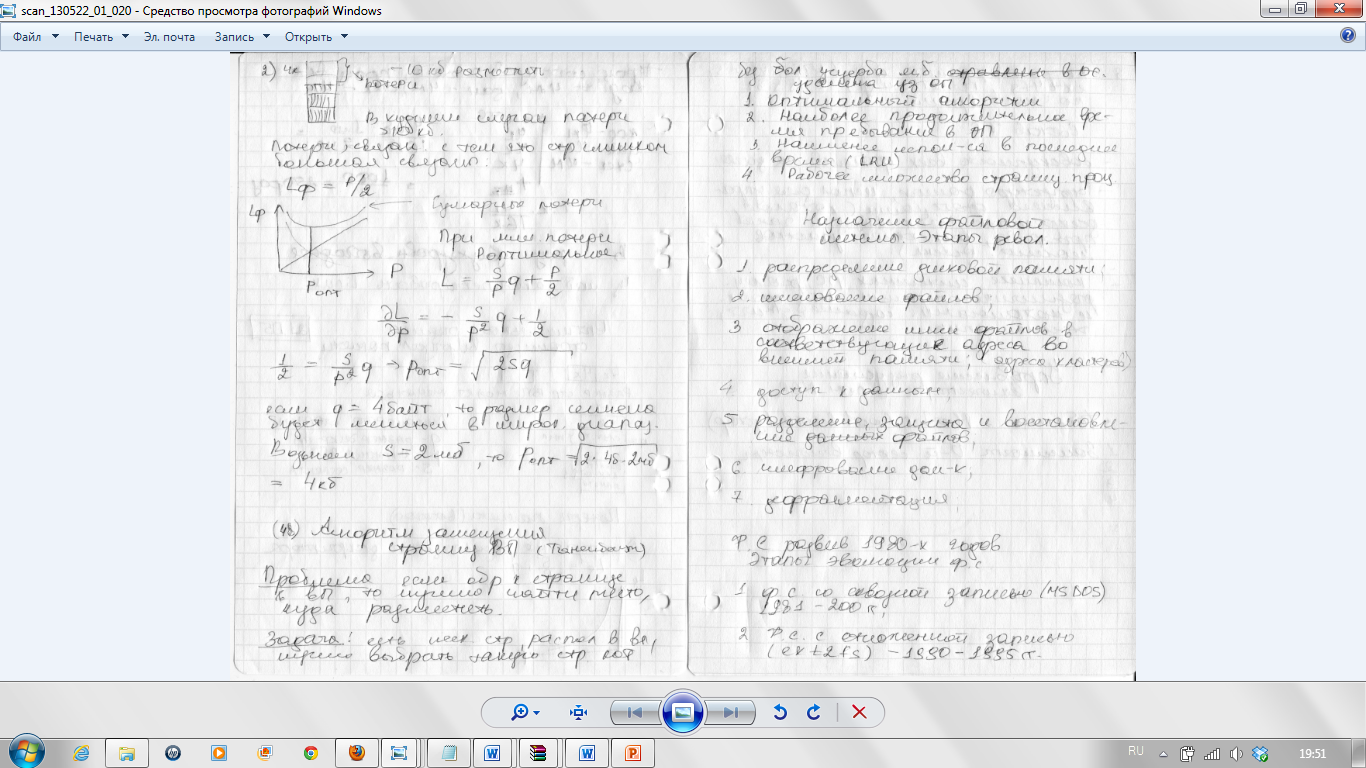 scan_130522_01_020 - Средство просмотра фотографий Windows
Файл Печать Эл. почта Запись Открыть
2) 4к - 10 кб разместил
потери
В худшем случаи потери
>100кб.
Потери, связан. с тем что стр слишком
большая связаны:
Lф = P/2
Lф Суммарные потери
При мин. потери
P оптимальное
P
Pопт
L = S/P q + P/2
∂L/∂p = - S/p² q + 1/2
1/2 = S/p² q → pопт = √2sq
если q = 4байт, то размер сегмена
будет меняться в широк. диапаз.
Возьмем S = 2мб, то Pопт = √2·4б·2мб
= 4кб
(48) Алгоритм замещения
страниц ВП (Таненбаум)
Проблема если обр к странице
в ВП, то нужно найти место,
куда разместить.
Задача! есть неск стр, распол в
нужно выбрать такую стр кот
без бол ущерба м.б.
удалена из ОП
1. Оптимальный алгоритм
2. Наиболее продолжительное вре-
мя пребывания в ОП
3 Наименее испол-ся в последнее
время (LRU)
4. Рабочее множество страниц проц
Назначение файловой
системы. Этапы
1. распределение дисковой памяти;
2. именование файлов;
3 отображение имен файлов в
соответствующие адреса во
внешней памяти; адреса кластеров)
4 доступ к данным;
5 разделение, защита и восстановле-
ние данных файлов;
6. шифрование дан-х;
7. дефрагментация;
Ф С развив 1980-х годов
Этапы эволюции ф.с
1 ф.с. со сквозной записью (MS DOS)
1981 - 200 г.;
2 Ф.с. с отложенной записью
(ext2fs) - 1990 - 1995 г.
RU 19:51